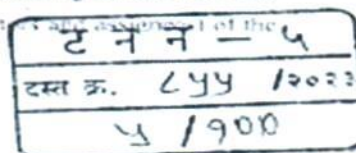 and assignment of the
ट न न - ५
दस्त क्र. ८५५ /२०२३
५ /१००